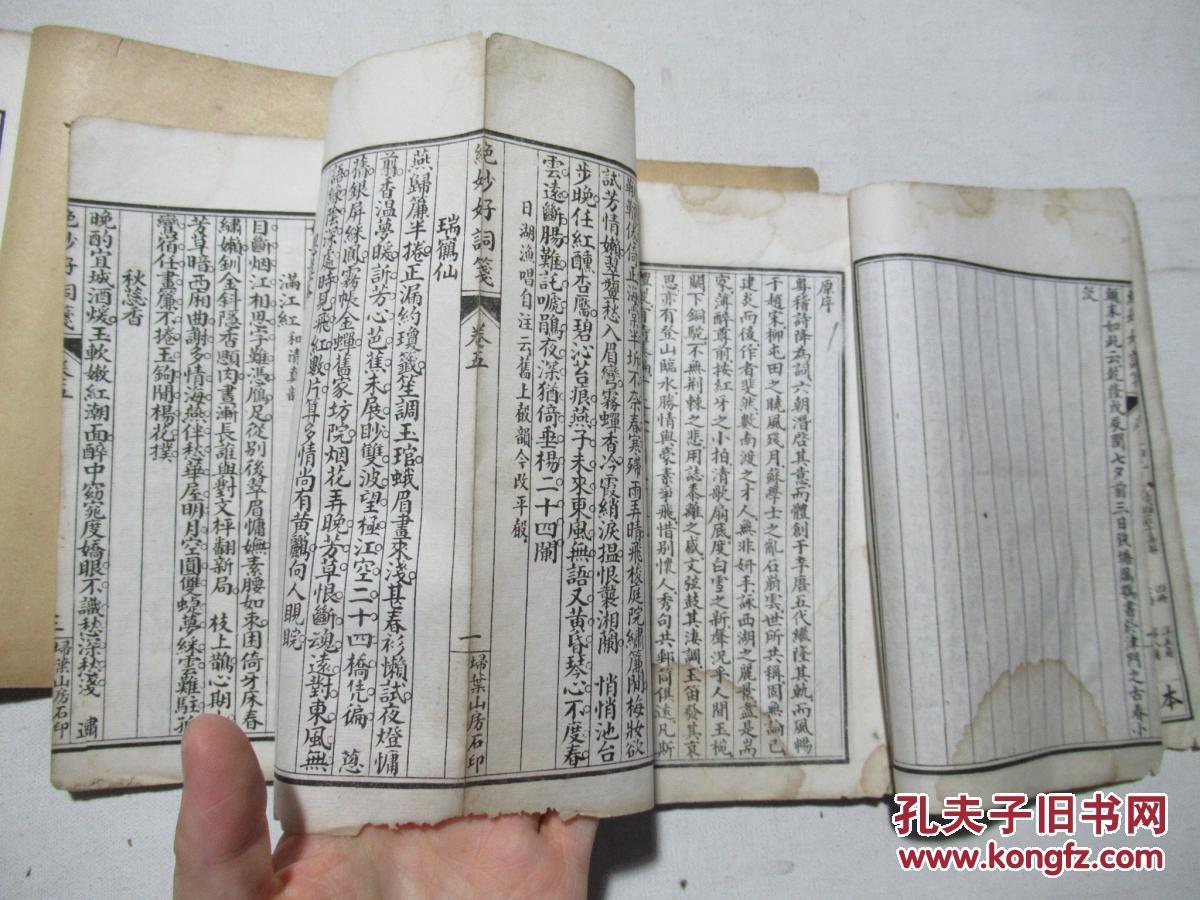 絶妙好詞箋
卷五
一
埽葉山房石印
試芳情懶翠顰愁入眉彎霧蟬香冷霞綃淚揾恨襲湘蘭　悄悄池台
步晚任紅醺杏靨碧沁苔痕燕子未來東風無語又黄昏琴心不度春
雲遠斷腸難託啼鵑夜深猶倚垂楊二十四闌
日湖漁唱自注云舊上聲韻今改平聲
瑞鶴仙
燕歸簾半捲正漏約瓊籤笙調玉琯蛾眉畫來淺甚春衫懶試夜燈慵
剪香温夢暖訴芳心芭蕉未展眇雙波望極江空二十四橋凭徧　葱
蒨銀屏綵鳳霧帳金蟬舊家坊院烟花弄晚芳草恨斷魂遠對東風無
語綠陰深處時見飛紅數片算多情尚有黄鸝向人睍睆
滿江紅 和清真韻
目斷烟江相思字難憑雁足從别後翠眉慵嫵素腰如束困倚牙床春
繡嬾釧金斜隱香顋肉晝漸長誰與對文枰翻新局　枝上鵲心期
芳草暗西廂曲謝多情海燕伴愁華屋明月空圓雙蝶夢綵雲難駐孤
鸞宿任畫簾不捲玉鉤閒楊花撲
秋蕊香
晚酌宜城酒煖玉軟嫩紅潮面醉中窈窕度嬌眼不識愁深愁淺　繡
絶妙好詞箋
卷五
三
埽葉山房石印
原序
粤稽詩降為詞六朝潛啓其意而體創于李唐五代繼隆其軌而風暢
于趙宋柳屯田之曉風殘月蘇學士之亂石崩雲世所共稱固無論已
建炎而後作者斐然數南渡之才人無非妍手詠西湖之麗景盡是高
家薄醉尊前按紅牙之小拍清歌扇底度白雪之新聲况乎人閒玉椀
闕下銅駝不無荆棘之悲用誌黍離之感文弦鼓其凄調玉笛發其哀
思亦有登山臨水勝情與豪素爭飛惜别懷人秀句共郵筒俱遠凡斯
顛末如此云乾隆戊辰閏七夕前三日錢塘厲鶚書於津門之古春小
茨
本
孔夫子旧书网
www.kongfz.com